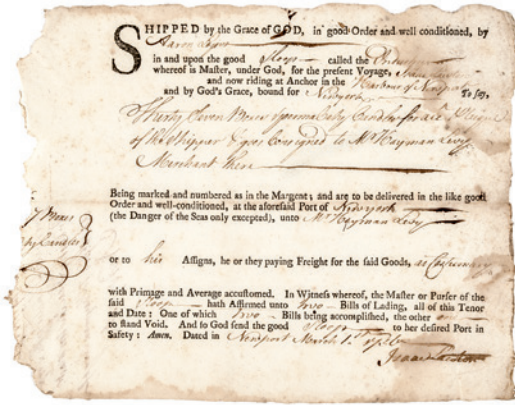 SHIPPED by the Grace of GOD, in good Order and well conditioned, by
Aaron Lopez
in and upon the good Sloop called the
whereof is Master, under God, for the present Voyage, Isaac
and now riding at Anchor in the Harbour of Newport
and by God's Grace, bound for Newyork To say,
Thirty Seven Boxes Sperma Cety Candles for
of the Shipper & goes Consigned to Mr Hayman Levy
Merchant there
Being marked and numbered as in the Margent; and are to be delivered in the like good
Order and well-conditioned, at the aforesaid Port of Newyork
(the Danger of the Seas only excepted), unto Mr Hayman Levy
Boxes
Candles
or to his Assigns, he or they paying Freight for the said Goods, as Customary
with Primage and Average accustomed. In Witness whereof, the Master or Purser of the
said Sloop hath Affirmed unto two Bills of Lading, all of this Tenor
and Date: One of which two Bills being accomplished, the other
to stand Void. And so God send the good Sloop to her desired Port in
Safety: Amen. Dated in Newport March 1.
Isaac